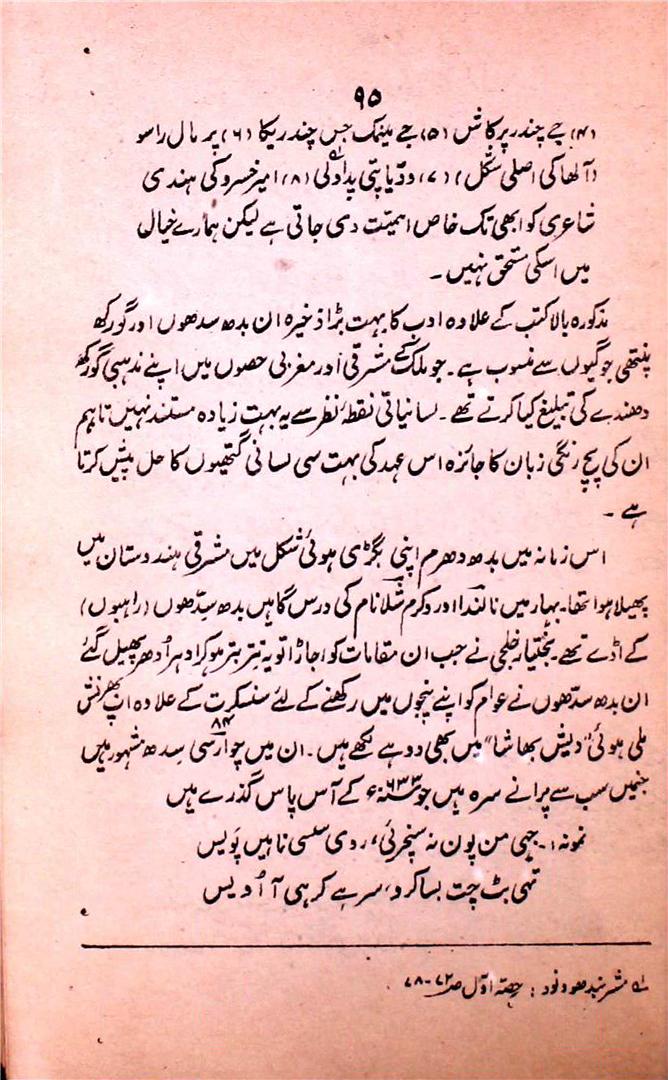 ۹۵
(۴) جے چندر پرکاش (۵) جے مینک جس چندریکا (۶) پر مال راسو
(آلھا کی اصلی شکل) (۷) ودیا پتی پداولی (۸) امیر خسرو کی ہندی
شاعری کو ابھی تک خاص اہمیت دی جاتی ہے لیکن ہمارے خیال
میں اسکی مستحق نہیں۔
مذکورہ بالا کتب کے علاوہ ادب کا بہت بڑا ذخیرہ ان بدھ سدھوں اور گورکھ
پنتھی جوگیوں سے منسوب ہے۔ جو ملک کے مشرقی اور مغربی حصوں میں اپنے مذہبی گورکھ
دھندے کی تبلیغ کیا کرتے تھے۔ لسانیاتی نقطۂ نظر سے یہ بہت زیادہ مستند نہیں تاہم
ان کی پچ رنگی زبان کا جائزہ اس عہد کی بہت سی لسانی گتھیوں کا حل پیش کرتا
ہے۔
اس زمانہ میں بدھ دھرم اپنی بگڑی ہوئی شکل میں مشرقی ہندوستان میں
پھیلا ہوا تھا۔ بہار میں نالندا اور وکرم شلا نام کی درس گاہیں بدھ سِدّھوں (راہبوں)
کے اڈے تھے۔ بختیار خلجی نے جب ان مقامات کو اجاڑا تو یہ تتر بتر ہو کر ادہر اُدھر پھیل گئے
ان بدھ سدّھوں نے عوام کو اپنے پنجوں میں رکھنے کے لئے سنسکرت کے علاوہ اپ بھرنش
ملی ہوئی "دیش بھاشا" میں بھی دوہے لکھے ہیں۔ ان میں چوراسی ۸۴ سدھ مشہور ہیں
جنمیں سب سے پرانے سرہ ہیں جو ۶۳۳ء کے آس پاس گذرے ہیں
نمونہ:۔ جہی من پون نہ سنچرئی، روی سسی ناہیں پَویس
تہی بٹ چت بسا کرد، سرہے کرہی آ اُدیس
لے مشر بندھو ونود: حصّہ اوّل صہ ۷۲-۷۸